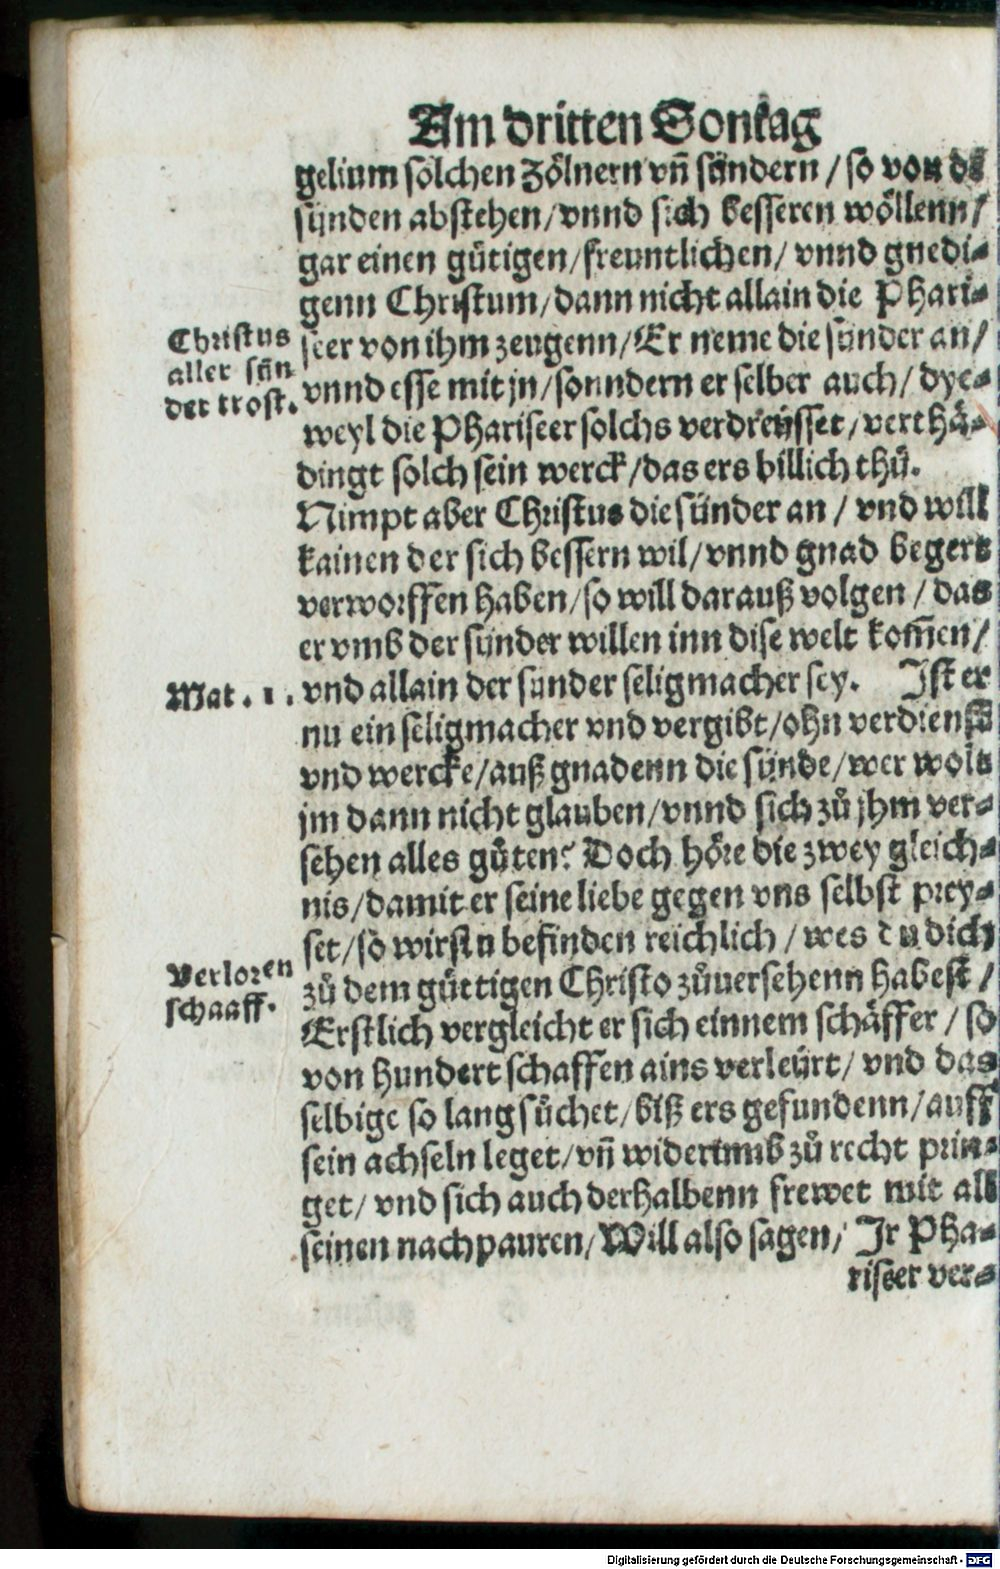 Am dritten Sontag
gelium solchen Zölnern vñ sündern / so von dē
sünden abstehen / vnnd sich besseren wöllenn /
gar einen gütigen / freuntlichen / vnnd gnedi⸗
genn Christum / dann nicht allain die Phari⸗
seer von ihm zeugenn / Er neme die sünder an /
vnnd esse mit jn / sonndern er selber auch / dye⸗
weyl die Phariseer solchs verdreüsset / verthä⸗
dingt solch sein werck / das ers billich thů.
Christus
aller sün
der trost.
Nimpt aber Christus die sünder an / vnd will
kainen der sich bessern wil / vnnd gnad begert
verworffen haben / so will darauß volgen / das
er vmb der sünder willen inn dise welt kom̄en /
vnd allain der sünder seligmacher sey. Ist er
Mat. 1.
nu ein seligmacher vnd vergibt / ohn verdienst
vnd wercke / auß gnadenn die sünde / wer wolt
jm dann nicht glauben / vnnd sich zů jhm ver⸗
sehen alles gůten? Doch höre die zwey gleich⸗
nis / damit er seine liebe gegen vns selbst prey⸗
set / so wirstu befinden reichlich / wes du dich
zů dem güttigen Christo zůuersehenn habest /
Verloren
schaaff.
Erstlich vergleicht er sich einnem schäffer / so
von hundert schaffen ains verleürt / vnd das
selbige so lang sůchet / biß ers gefundenn / auff
sein achseln leget / vñ widerumb zů recht prin⸗
get / vnd sich auch derhalbenn frewet mit all
seinen nachpauren / Will also sagen / Ir Pha⸗
riseer ver⸗
Digitalisierung gefördert durch die Deutsche Forschungsgemeinschaft - DFG